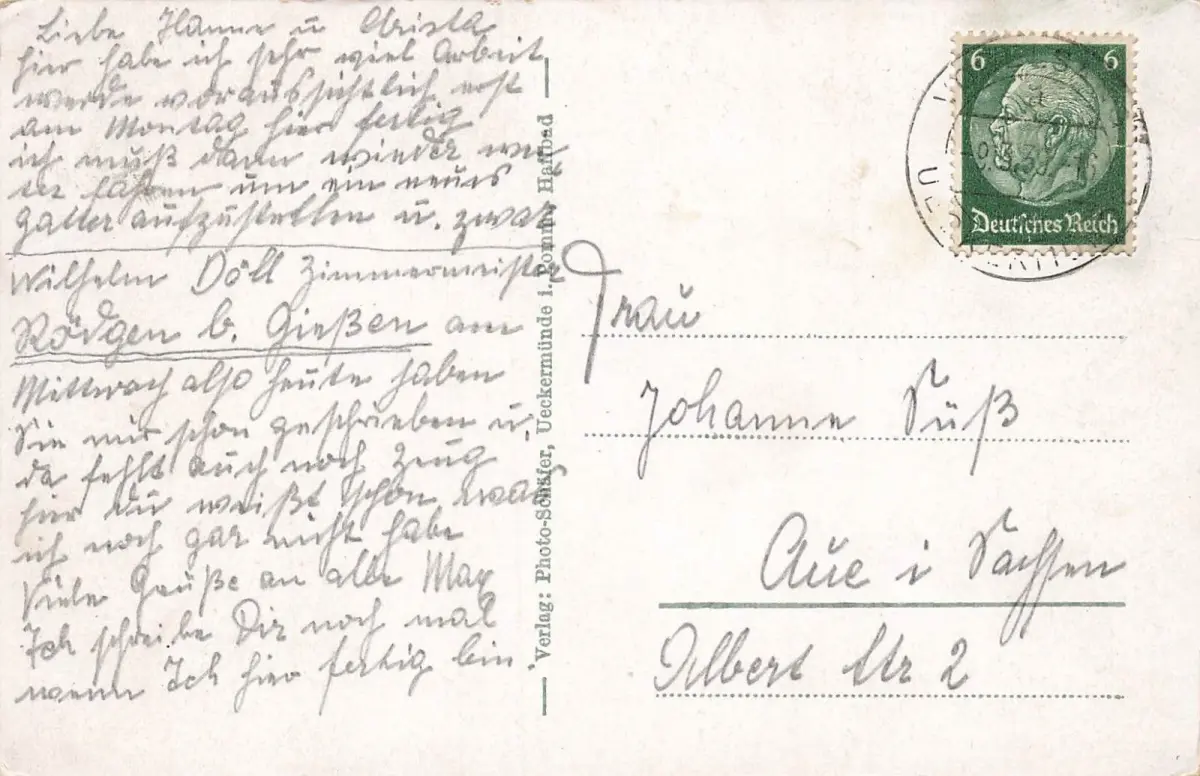 Liebe Hanne u Christa
hier habe ich sehr viel Arbeit
werde voraussichtlich erst
am Montag hier fertig
ich muß dann wieder wei
ter fahren um ein neues
Gatter aufzustellen u. zwar
Wilhelm Döll Zimmermeister
Rödgen b. Gießen am
Mittwoch also heute haben
Sie mir schon geschrieben u.
da fehlt auch noch Zeug
hier du weißt schon was
ich noch gar nicht habe
Viele Grüße an alle Max
Ich schreibe Dir noch mal
wenn Ich hier fertig bin
Verlag: Photo-Schäfer, Ueckermünde i. Pomm. Haffbad
6 6
Deutsches Reich
Frau
Johanne Süß
Aue i Sachsen
Albert Str 2